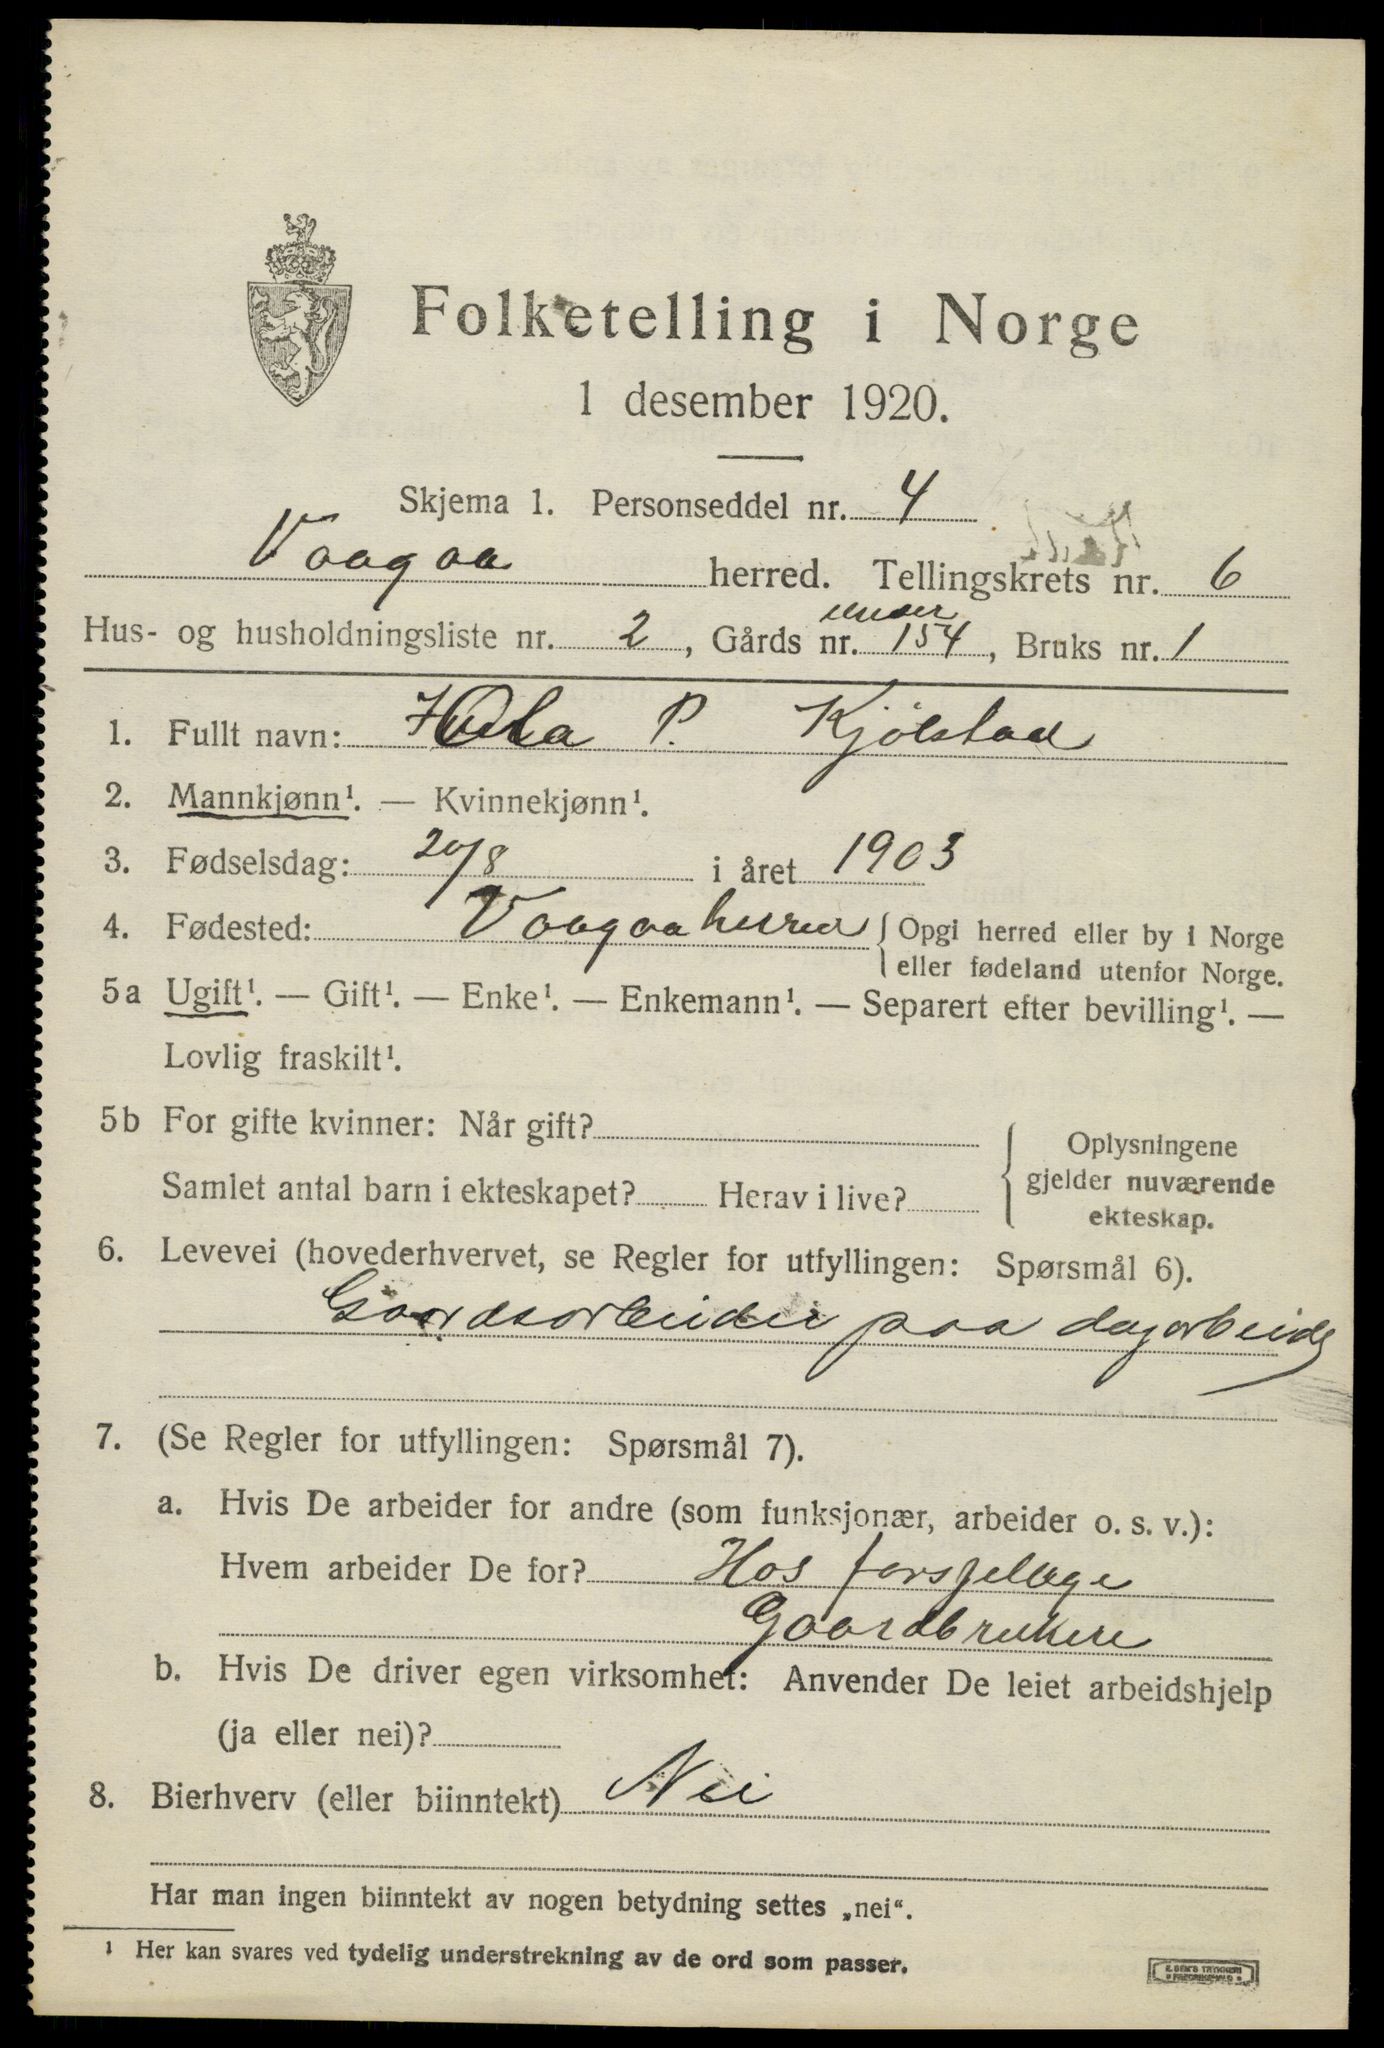 Folketelling i Norge
1 desember 1920.
Skjema 1. Personseddel nr. 4
Vaagaa herred. Tellingskrets nr. 6
under
Hus- og husholdningsliste nr. 2, Gårds nr. 154, Bruks nr. 1
1. Fullt navn: Ola P. Kjølstad
2. Mannkjønn¹. — Kvinnekjønn¹.
3. Fødselsdag: 20/8 i året 1903
4. Fødested: Vaagaa herred { Opgi herred eller by i Norge
eller fødeland utenfor Norge.
5a Ugift¹. — Gift¹. — Enke¹. — Enkemann¹. — Separert efter bevilling¹. —
Lovlig fraskilt¹.
5b For gifte kvinner: Når gift?
Samlet antal barn i ekteskapet? Herav i live?
{ Oplysningene
gjelder nuværende
ekteskap.
6. Levevei (hovederhvervet, se Regler for utfyllingen: Spørsmål 6).
Gaardsarbeider paa dagarbeide
7. (Se Regler for utfyllingen: Spørsmål 7).
a. Hvis De arbeider for andre (som funksjonær, arbeider o. s. v.):
Hvem arbeider De for? Hos forsjellige
Gaardbrukere
b. Hvis De driver egen virksomhet: Anvender De leiet arbeidshjelp
(ja eller nei)?
8. Bierhverv (eller biinntekt) Nei
Har man ingen biinntekt av nogen betydning settes „nei“.
¹ Her kan svares ved tydelig understrekning av de ord som passer.